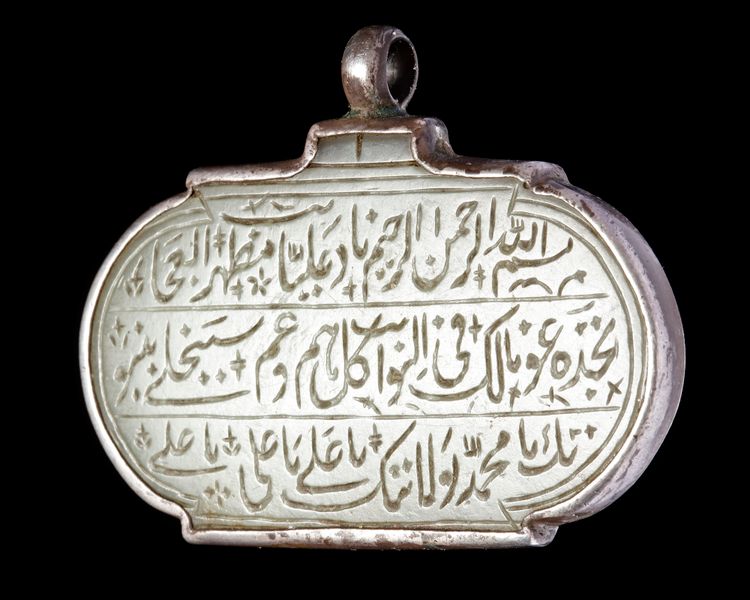 بسم الله الرحمن الرحيم ناد عليا مظهر العجائب
تجده عونا لك في النوائب كل هم وغم سينجلي بنبو
تك يا محمد ولايتك يا علي يا علي يا علي